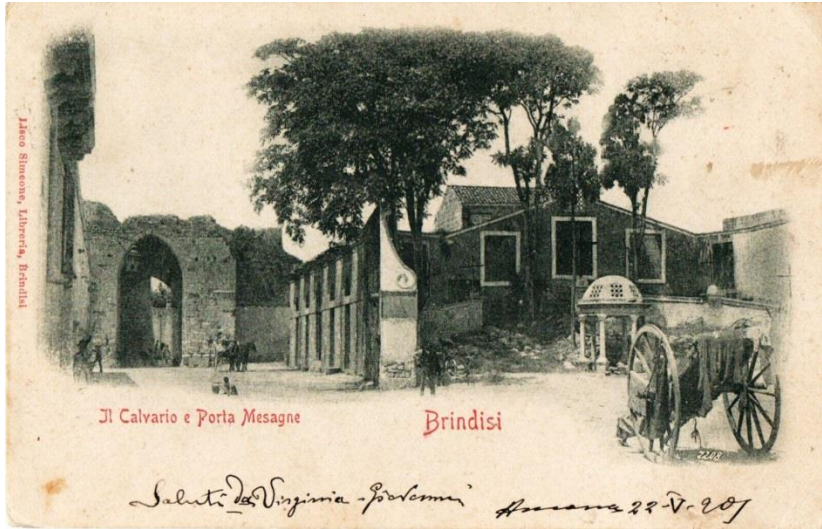 Lisco Simeone, Libreria, Brindisi
Il Calvario e Porta Mesagne
Brindisi
7208
Saluti da Virginia - Giovanni
Ancona 22-V-901